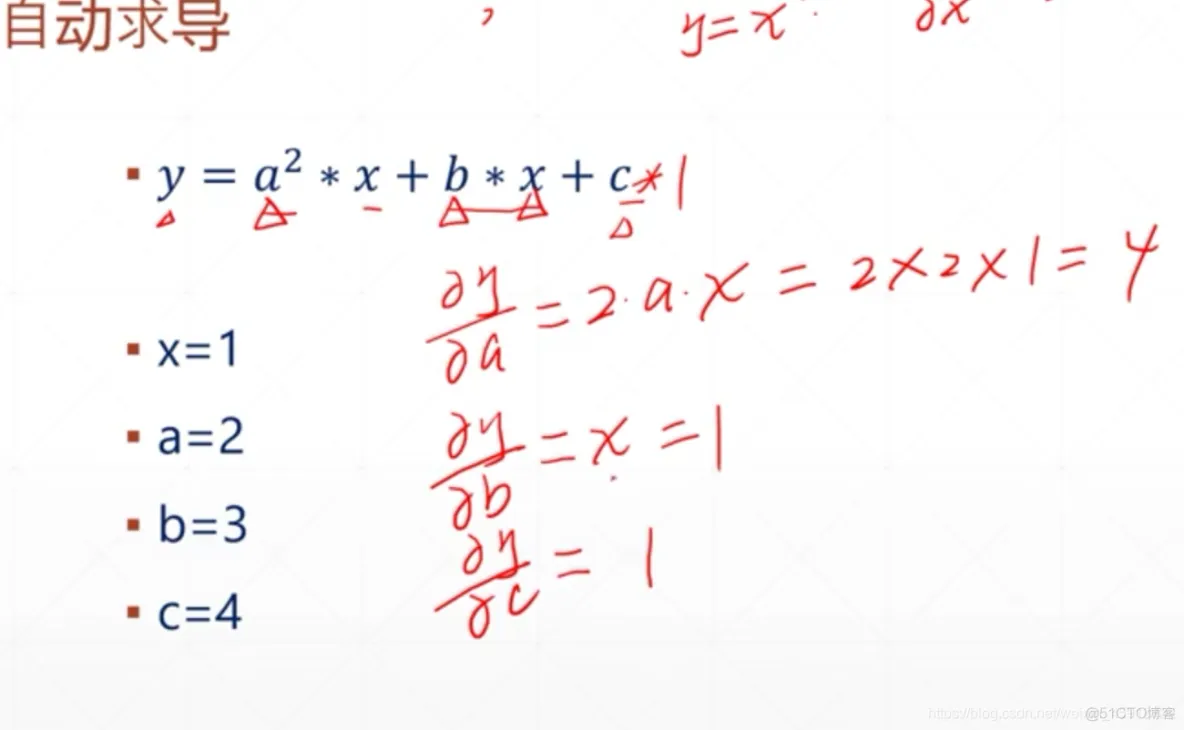 自动求导
y = x
∂x
y = a² * x + b * x + c * 1
∂y/∂a = 2·a·x = 2×2×1 = 4
x=1
a=2
∂y/∂b = x = 1
b=3
∂y/∂c = 1
c=4
https://blog.csdn.net/wei
@51CTO博客